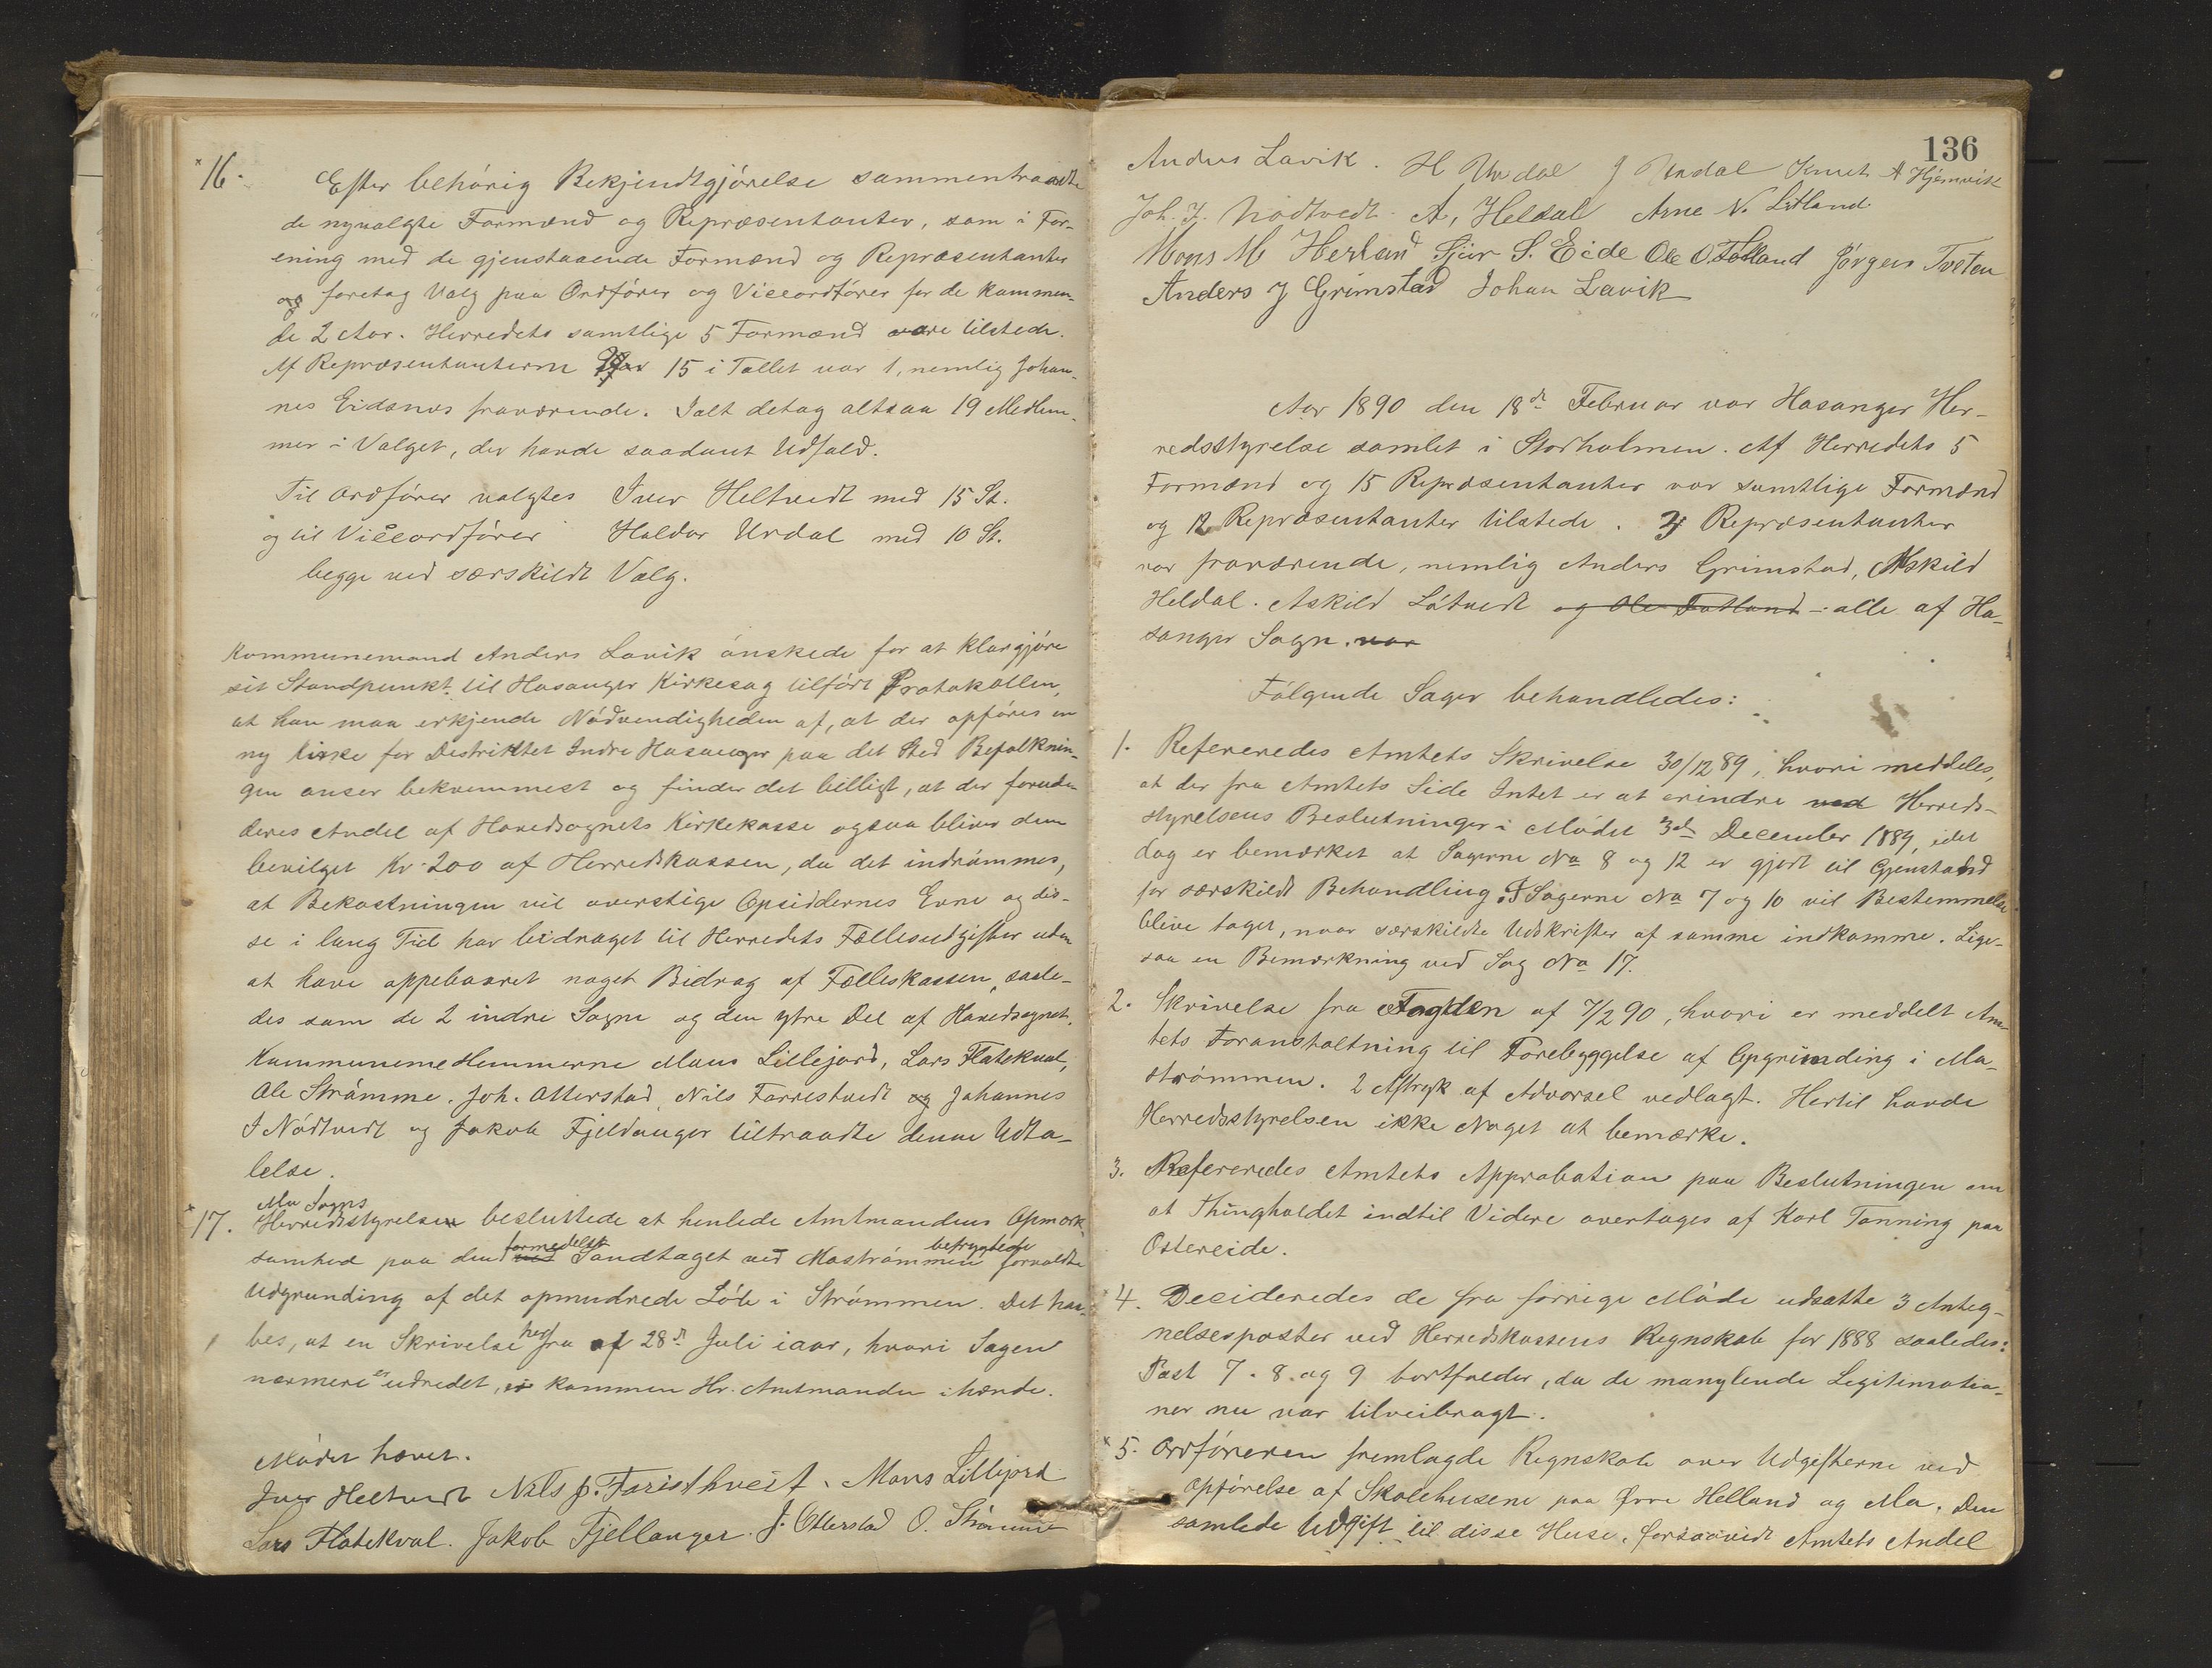 16. Efter behørig Bekjendtgjørelse sammentraadte
de nyvalgte Formænd og Repræsentanter, som i For-
ening med de gjenstaaende Formænd og Repræsentanter
og foretog Valg paa Ordfører og Viceordfører for de kommen-
de 2 Aar. Herredets samtlige 5 Formænd vare tilstede.
Af Repræsentanterne 15 i Tallet var 1, nemlig Johan-
nes Eidsnes fraværende. Ialt detog altsaa 19 Medlem-
mer i Valget, der havde saadant Udfald.
Til Ordfører valgtes Iver Heltvedt med 15 St.
og til Viceordfører Haldor Urdal med 10 St.
begge ved særskildt Valg.
Kommunemand Anders Lavik ønskede for at klargjøre
sit Standpunkt til Hosanger Kirkesag tilført Protokollen,
at han maa erkjende Nødvendigheden af, at der opføres en
ny kirke for Distriktet Indre Hosanger paa det Sted Befolknin-
gen anser bekvemmest og finder det billigt, at der foruden
deres Andel af Hovedsognets Kirkekasse ogsaa bliver dem
bevilget Kr 200 af Herredskassen, da det indrømmes,
at Bekostningen vil overstige Opsiddernes Evne og dis-
se i lang Tid har bidraget til Herredets Fællesudgifter uden
at have oppebaaret noget Bidrag af Fælleskassen, saale-
des som de 2 indre Sogne og den ytre Del af Hovedsognet.
Kommunemedlemmerne Mons Lillejord, Lars Flatekval,
Ole Strømme, Joh. Otterstad, Nils Farrestvedt og Johannes
J Nødtvedt og Jakob Fjeldanger tiltraadte denne Udta-
lelse.
Mo Sogns
17. Herredsstyrelsen besluttede at henlede Amtmandens Opmærk-
formedelst befrygtede
somhed paa den ved Sandtaget ved Mostrømmen forvoldte
Udgrunding af det opmudrede Løb i Strømmen. Det haa-
bes, at en Skrivelse herfra af 28de Juli iaar, hvori Sagen
nærmere er udredet, er kommen Hr. Amtmanden ihænde.
Mødet hævet.
Iver Heltvedt Nils J. Faristhveit. Mons Lillijord
Lars Flatekval. Jakob Fjellanger. J. Otterstad O. Strømme
136
Anders Lavik. H Urdal J Urdal Knut A Hjemvik
Joh. J. Nødtvedt. A, Heldal Arne N. Litland
Mons M Herland Sjur S. Eide Ole O. Totland Jørgen Tveten
Anders J Grimstad Johan Lavik
Aar 1890 den 18de Februar var Hosanger Her-
redsstyrelse samlet i Storholmen. Af Herredets 5
Formænd og 15 Repræsentanter var samtlige Formænd
og 12 Repræsentanter tilstede. 3 Repræsentanter
var fraværende, nemlig Anders Grimstad, Askild
Heldal. Askild Løtvedt og Ole Totland - alle af Ho-
sanger Sogn. var
Følgende Sager behandledes:
1. Refereredes Amtets Skrivelse 30/12 89, hvori meddeles,
at der fra Amtets Side Intet er at erindre ved Herreds-
styrelsens Beslutninger i Mødet 3de December 1889, idet
dog er bemærket at Sagerne No 8 og 12 er gjort til Gjenstand
for særskildt Behandling. I Sagerne No 7 og 10 vil Bestemmelse
blive taget, naar særskildte Udskrifter af samme indkomme. Lige-
saa en Bemærkning ved Sag No 17.
2. Skrivelse fra Fogden af 7/2 90, hvori er meddelt Am-
tets Foranstaltning til Forebyggelse af Opgrunding i Mo-
strømmen. 2 Aftryk af Advarsel vedlagt. Hertil havde
Herredsstyrelsen ikke Noget at bemærke.
3. Refereredes Amtets Approbation paa Beslutningen om
at Thingholdet indtil Videre overtages af Karl Tanning paa
Ostereide.
4. Decideredes de fra forrige Møde udsatte 3 Anteg-
nelsesposter ved Herredskassens Regnskab for 1888 saaledes:
Post 7. 8. og 9 bortfalder, da de manglende Legitimatio-
ner nu var tilveibragt.
5. Ordføreren fremlagde Regnskab over Udgifterne ved
Opførelse af Skolehusene paa Øvre Helland og Mo. Den
samlede Udgift til disse Huse, forsaavidt Amtets Andel